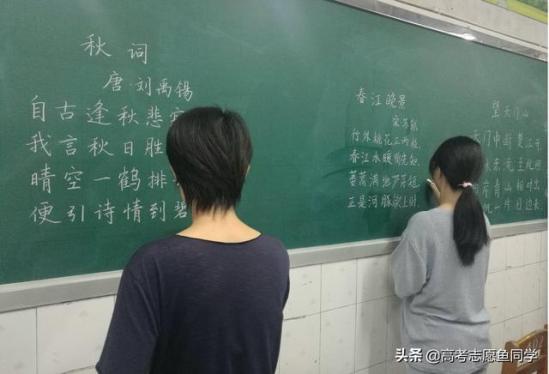 秋词
唐·刘禹锡
自古逢秋悲
我言秋日胜
晴空一鹤排
便引诗情到碧
春江晚景
宋
桃花三两枝
春江水暖鸭先知
蒌蒿满地芦芽短
正是河豚欲上时
望天门山
天门中断楚江开
水东流至此回
岸青山相对出
帆一片日边来
头条 @高考志愿鱼同学